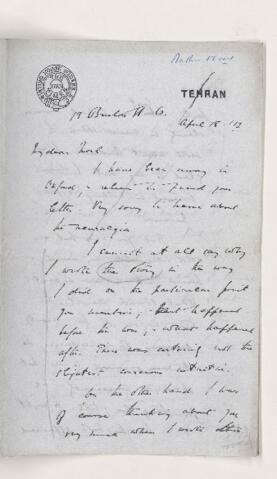 TEHRAN
April 18. /19
My dear Noel
I have been away in
Oxford, & return to find your
letter. Very sorry to hear about
the neuralgia
I cannot at all say why
I wrote the story in the way
I did on the particular point
you mention; what happened
before the war, & what happened
after. There was certainly not the
slightest conscious intention.
On the other hand I was
of course thinking about you
very much when I wrote